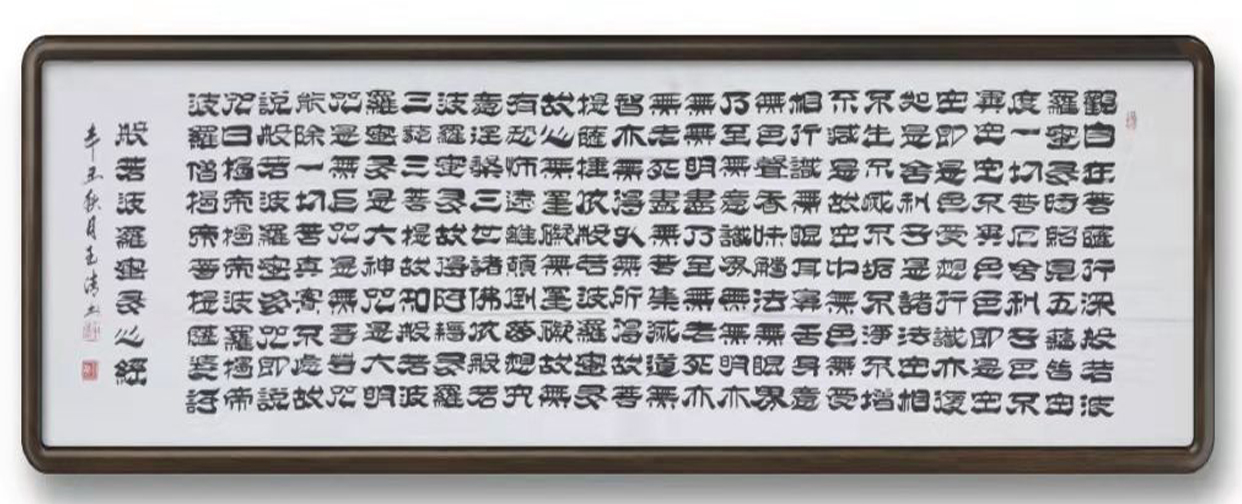 觀自在菩薩行深般若波
羅蜜多時照見五蘊皆空
度一切苦厄舍利子色不
異空空不異色色即是空
空即是色受想行識亦復
如是舍利子是諸法空相
不生不滅不垢不淨不增
不減是故空中無色無受
相行識無眼耳鼻舌身意
無色聲香味觸法無眼界
乃至無意識界無無明亦
無無明盡乃至無老死亦
無老死盡無苦集滅道無
智亦無得以無所得故菩
提薩埵依般若波羅蜜多
故心無罣礙無罣礙故無
有恐怖遠離顛倒夢想究
竟涅槃三世諸佛依般若
波羅蜜多故得阿耨多羅
三藐三菩提故知般若波
羅蜜多是大神咒是大明
咒是無上咒是無等等咒
能除一切苦真實不虛故
說般若波羅蜜多咒即說
咒曰揭帝揭帝波羅揭帝
波羅僧揭帝菩提薩婆訶
般若波羅蜜多心經
辛丑秋月